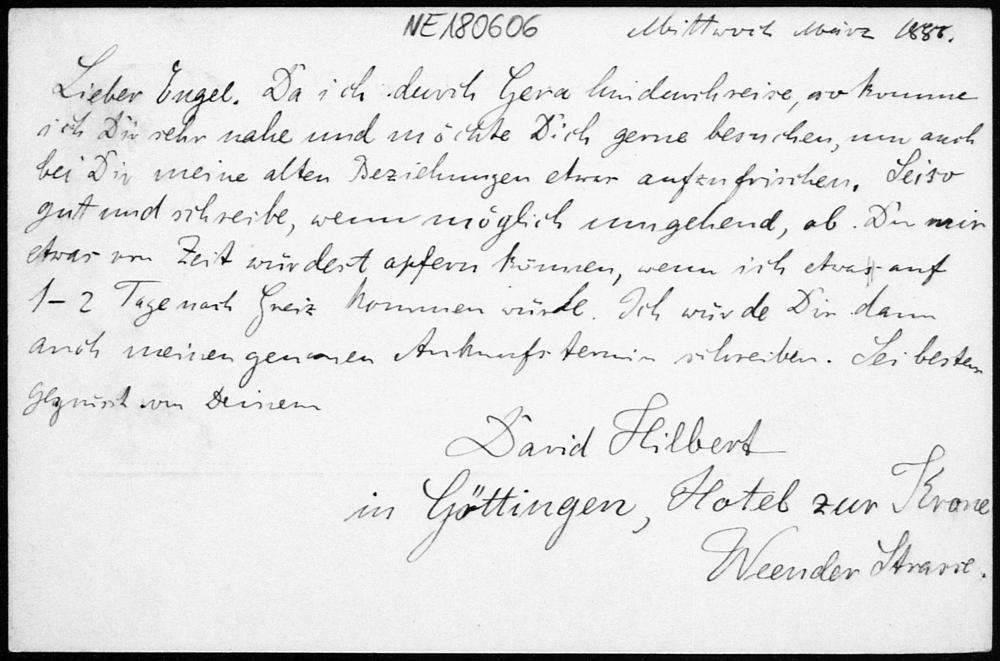 NE180606
Mittwoch März 1888.
Lieber Engel. Da ich durch Gera hindurchreise, so komme
ich Dir sehr nahe und möchte Dich gerne besuchen, um auch
bei Dir meine alten Beziehungen etwas aufzufrischen. Sei so
gut und schreibe, wenn möglich umgehend, ob Du mir
etwas von Zeit würdest opfern können, wenn ich etwa auf
1-2 Tage nach Greiz kommen würde. Ich würde Dir dann
auch meinen genauen Ankunftstermin schreiben. Sei bestens
gegrüsst von Deinem
David Hilbert
in Göttingen, Hotel zur Krone
Weender Strasse.